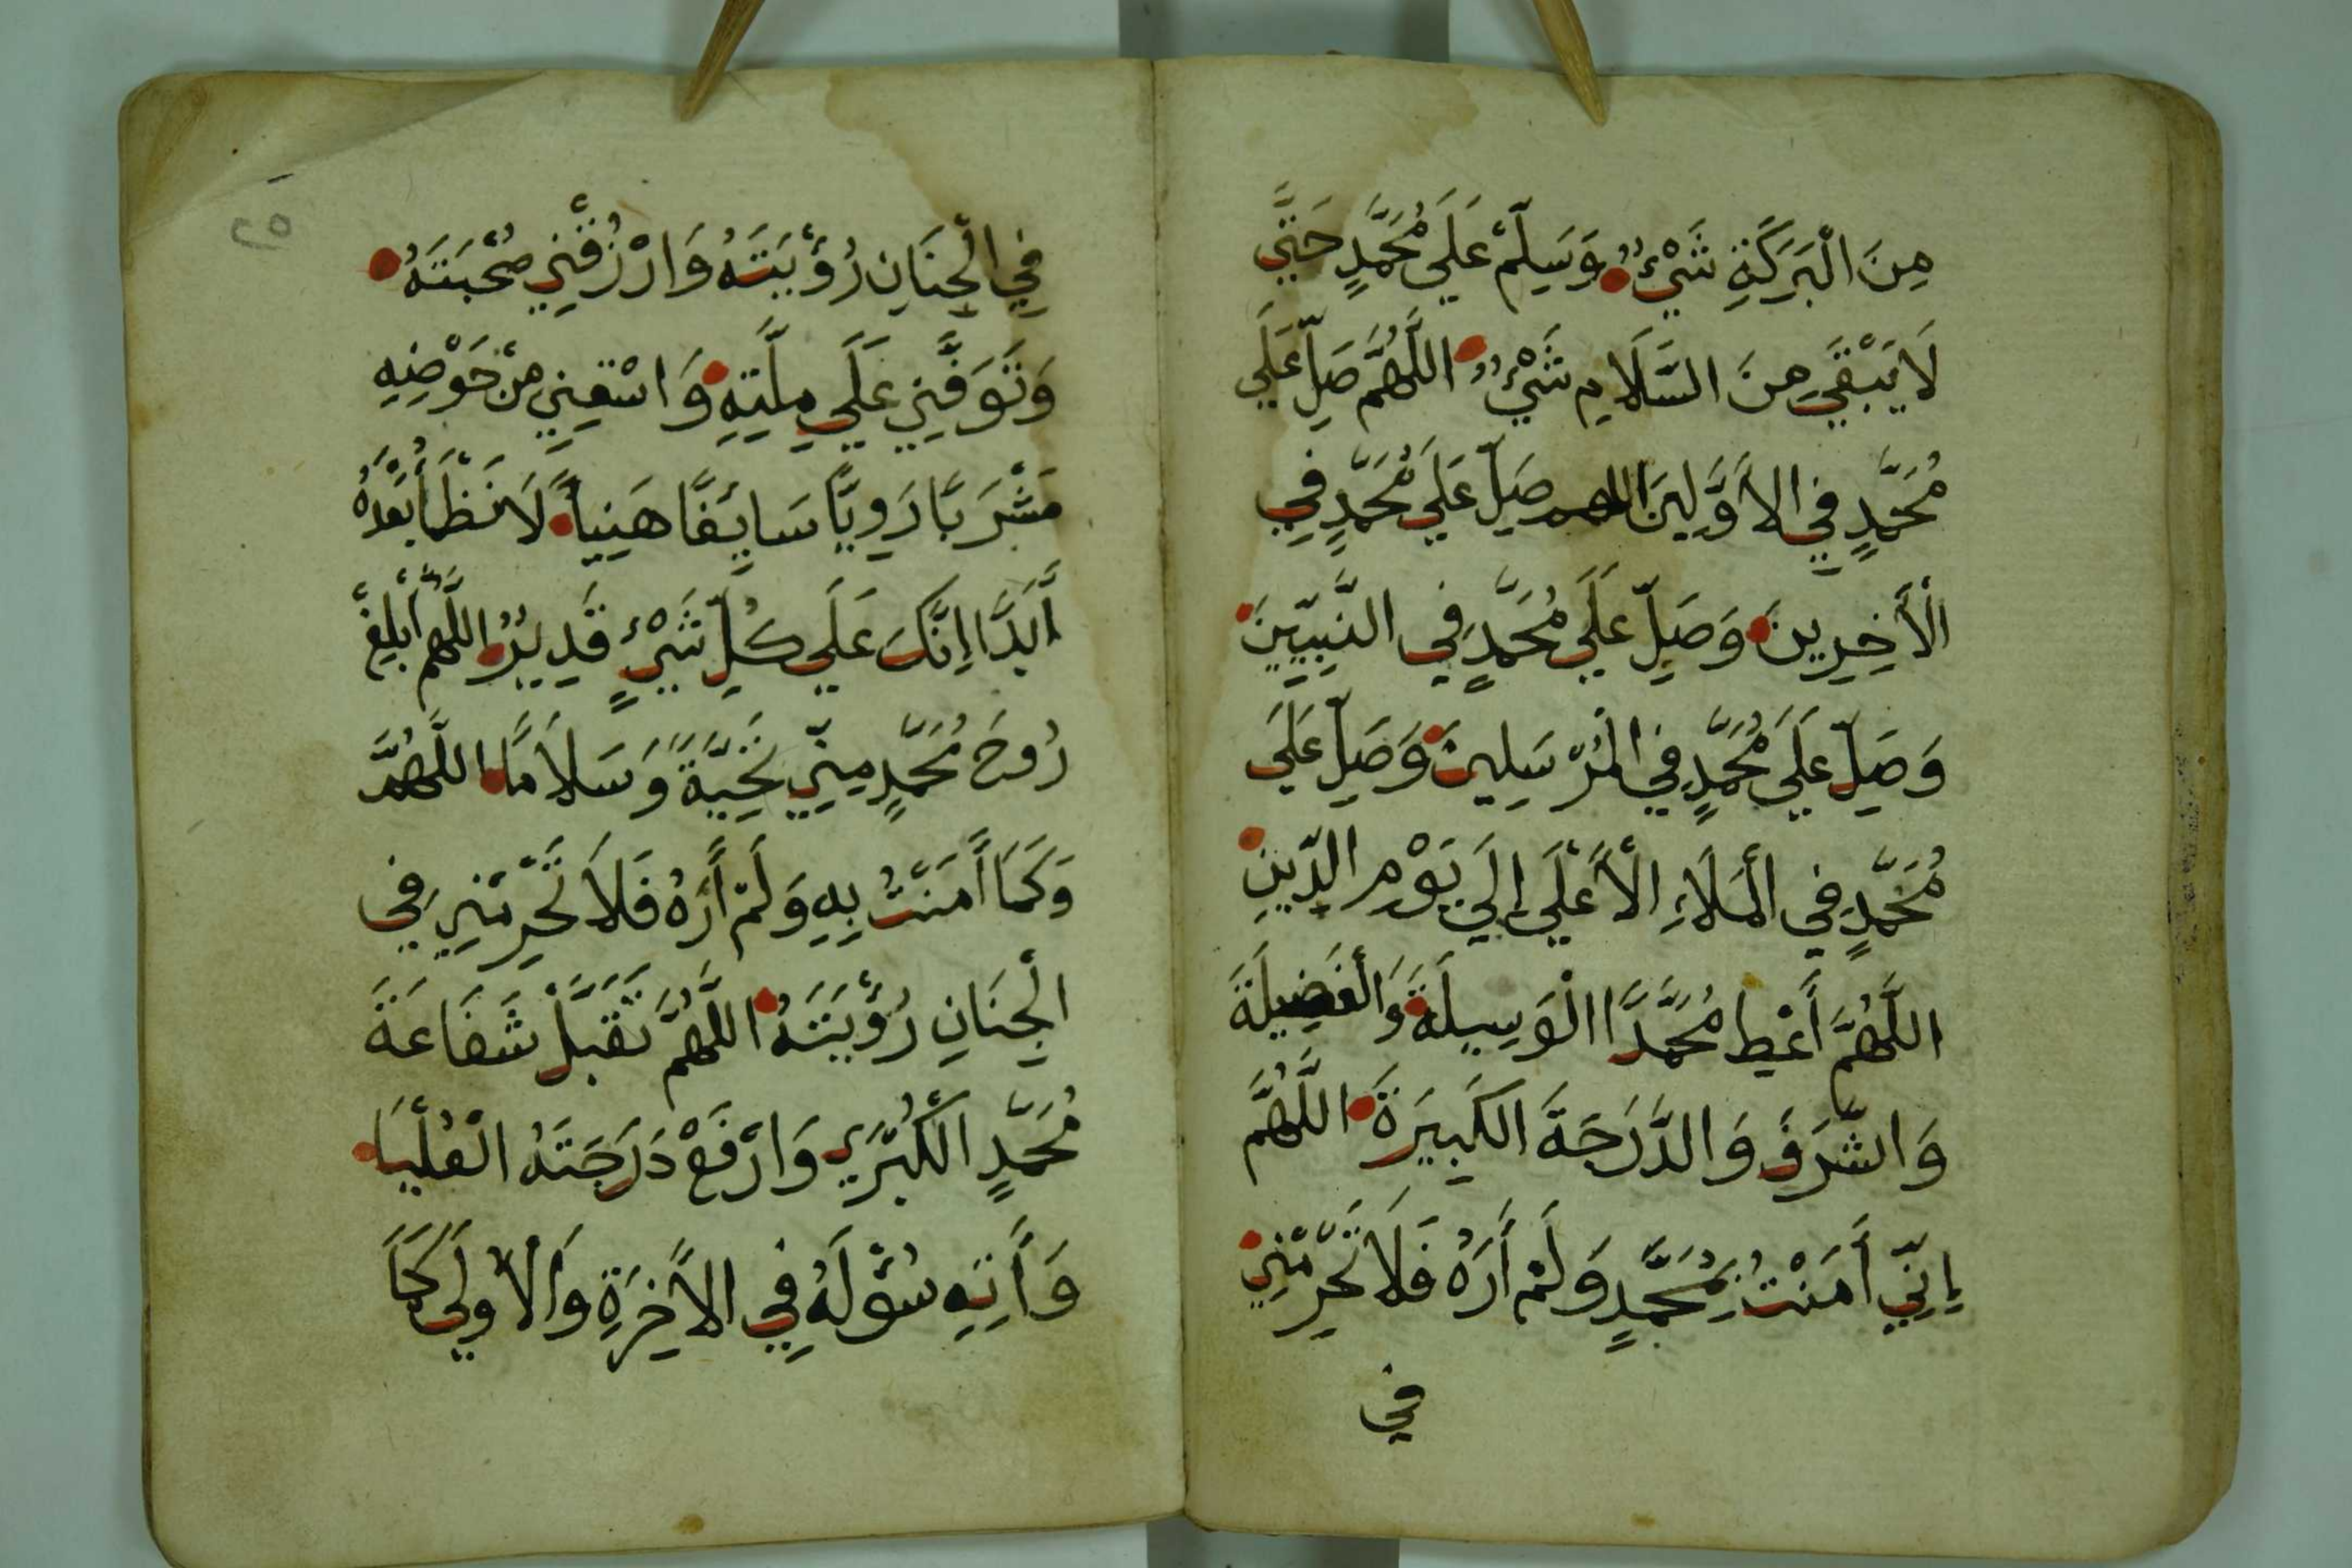 مِنَ الْبَرَكَةِ شَيْءٌ وَسَلِّمْ عَلَي مُحَمَّدٍ حَتَّي
لَا يَبْقَي مِنَ السَّلَامِ شَيْءٌ اللَّهُمَّ صَلِّ عَلَي
مُحَمَّدٍ فِي الأَوَّلِينَ اللهم صَلِّ عَلَي مُحَمَّدٍ فِي
الْأَخِرِينَ وَصَلِّ عَلَي مُحَمَّدٍ فِي النَّبِيِّينَ
وَصَلِّ عَلَي مُحَمَّدٍ فِي الْمُرْسَلِينَ وَصَلِّ عَلَي
مُحَمَّدٍ فِي الْمَلَاءِ الْأَعْلَي إِلَي يَوْمِ الدِّينِ
اللَّهُمَّ أَعْطِ مُحَمَّدًا الْوَسِيلَةَ وَالْفَضِيلَةَ
وَالشَّرَفَ وَالدَّرَجَةَ الكَبِيرَةَ اللَّهُمَّ
إِنِّي أَمَنْتُ بِمُحَمَّدٍ وَلَمْ أَرَهُ فَلَا تَحْرِمْنِي
فِي
٢٥
فِي الْجِنَانِ رُؤْيَتَهُ وَارْزُقْنِي صُحْبَتَهُ
وَتَوَفَّنِي عَلَي مِلَّتِهِ وَاسْقِنِي مِنْ حَوْضِهِ
مَشْرَبًا رَوِيًّا سَايِغًا هَنِيأً لَا نَظْمَأُ بَعْدَهُ
أَبَدًا إِنَّكَ عَلَي كُلِّ شَيْءٍ قَدِيرٌ اللَّهُمَّ أَبْلِغْ
رُوحَ مُحَمَّدٍ مِنِّي تَحِيَّةً وَسَلَامًا اللَّهُمَّ
وَكَمَا أَمَنْتُ بِهِ وَلَمْ أَرَهُ فَلَا تَحْرِمْنِي فِي
الْجِنَانِ رُؤْيَتَهُ اللَّهُمَّ تَقَبَّلْ شَفَاعَةَ
مُحَمَّدٍ الْكُبْرَي وَارْفَعْ دَرَجَتَهُ الْعُلْيَا
وَأَتِهِ سُؤْلَهُ فِي الأَخِرَةِ وَالْأُولَي كَمَا